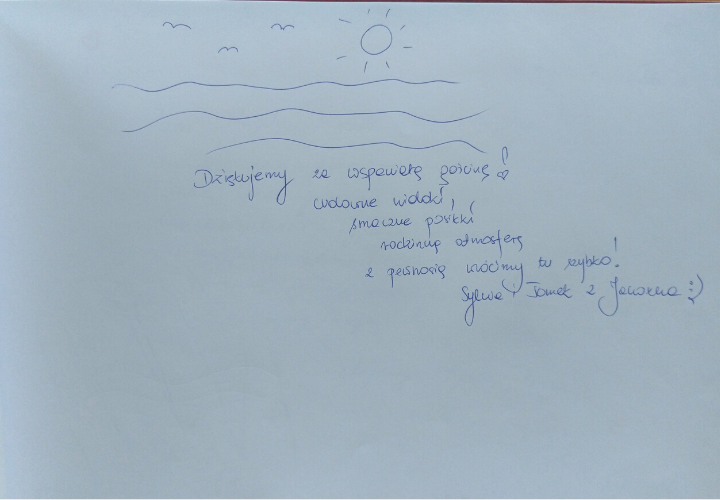 Dziękujemy za wspaniałą gościnę!
cudowne widoki,
smaczne posiłki
rodzinną atmosferę
z pewnością wrócimy tu szybko!
Sylwia i Tomek z Jaworzna :)